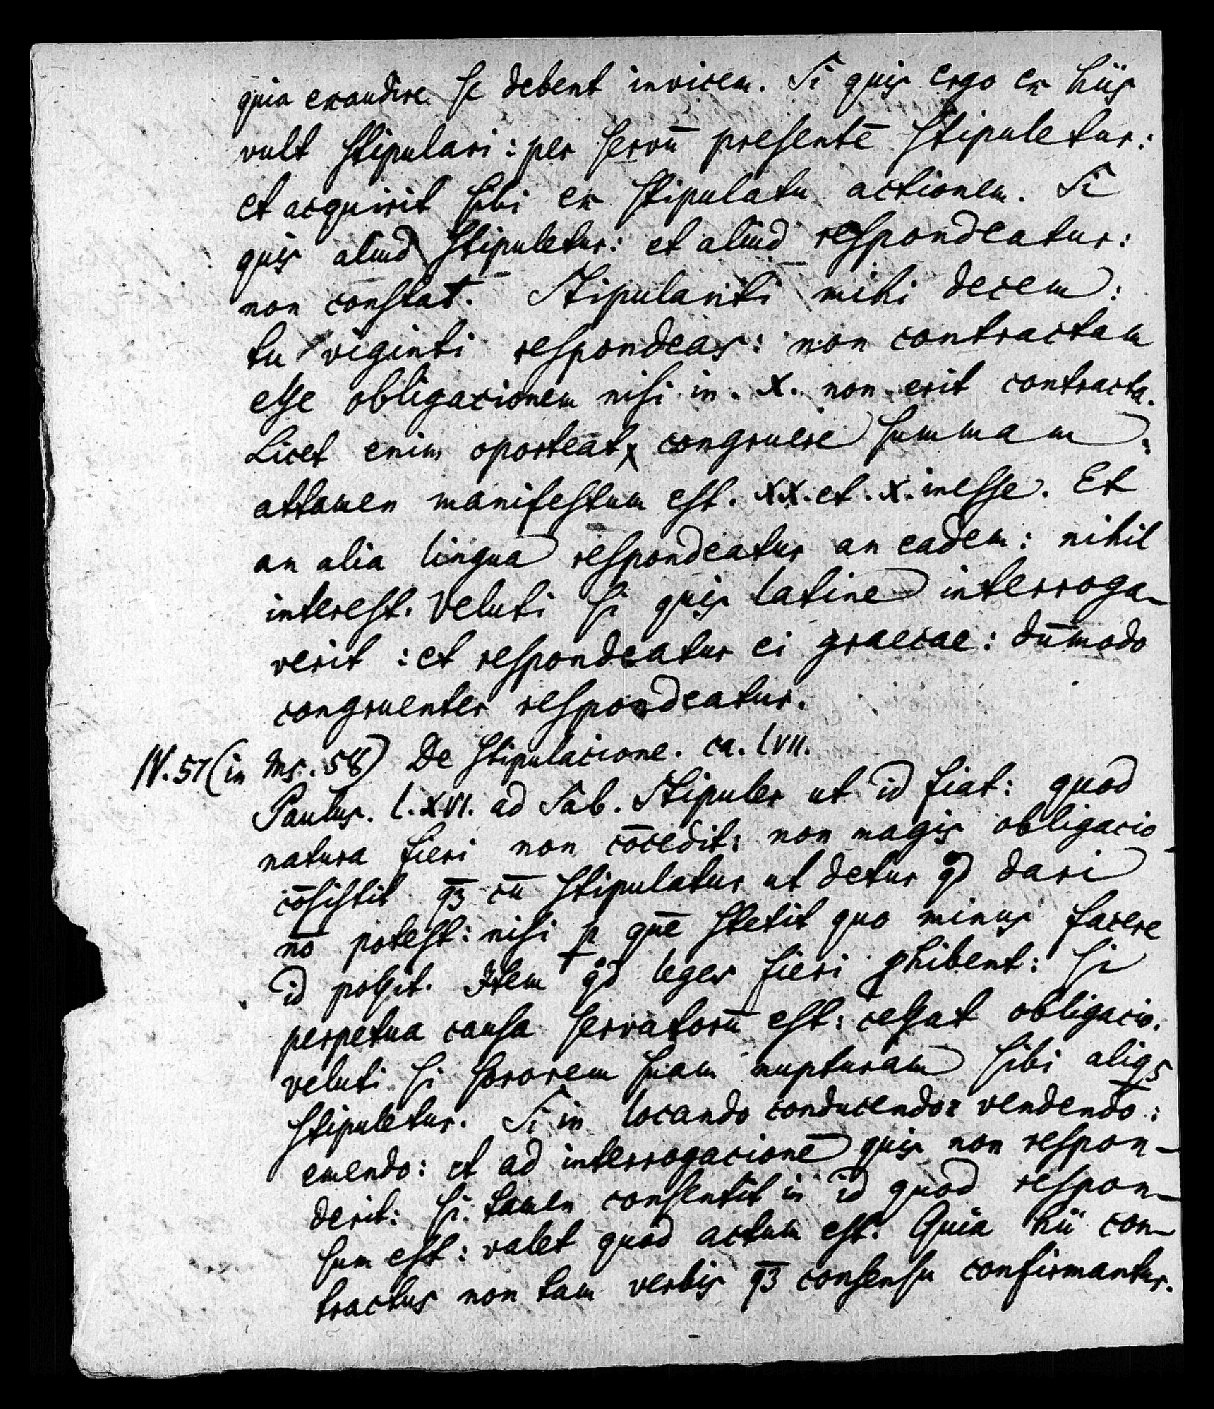 quia exaudire se debent invicem. Si quis ergo ex hiis
vult stipulari: per servū presentē stipuletur:
et acquirit sibi ex stipulatu actionem. Si
quis aliud stipuletur: et aliud respondeatur:
non constat. Stipulanti mihi decem:
tu viginti respondeas: non contractam
esse obligacionem nisi in . X. non erit contracta.
Licet enim oporteat congruere summam:
attamen manifestum est. XX. et . X. inesse. Et
an alia lingua respondeatur an eadem: nihil
interest. Veluti si quis latine interroga-
verit: et respondeatur ei graecae: dūmodo
congruenter respondeatur.
IV. 57 (in Ms. 58) De stipulacione. ca. lvII.
Paulus. l. XVI. ad Sab. Stipuler ut id fiat: quod
natura fieri non cōcedit: non magis obligacio
cōsistit q̄ȝ cū stipulatur ut detur qd dari
nō potest: nisi p quē stetit quo minus facere
id possit. Item qd leges fieri phibent: si
perpetua causa servatorū est: cessat obligacio.
veluti si sororem suam nupturam sibi aliqs
stipuletur. Si in locando conducendo: vendendo:
emendo: et ad interrogacionē quis non respon-
derit: si tamen consentit in id quod respon-
sum est: valet quod actum est. Quia hii con-
tractus non tam verbis q̄ȝ consensu confirmantur.